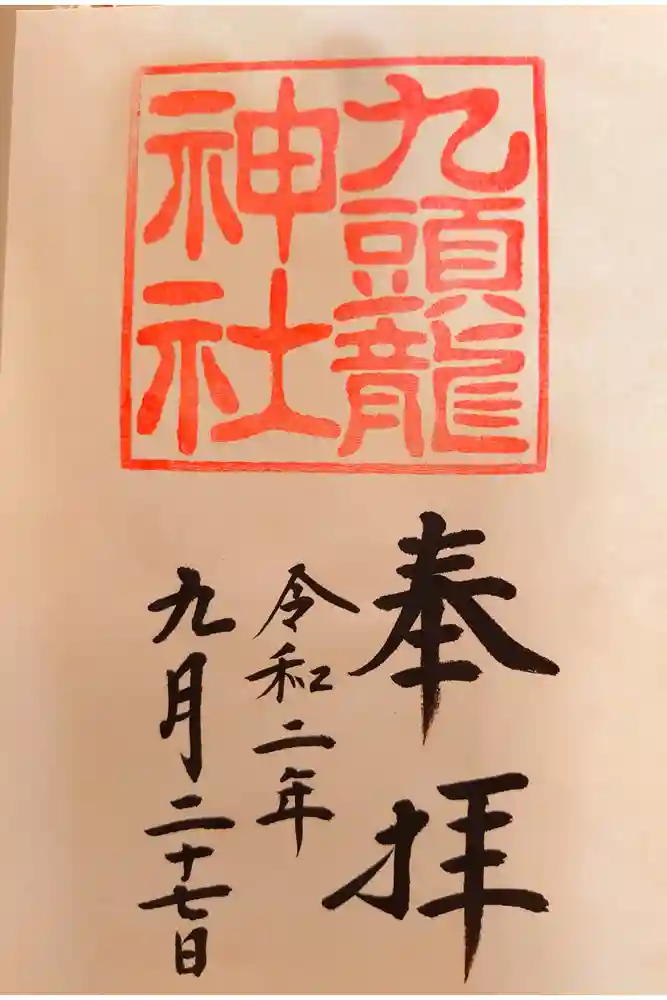 九頭龍
神社
奉拝
令和二年
九月二十七日